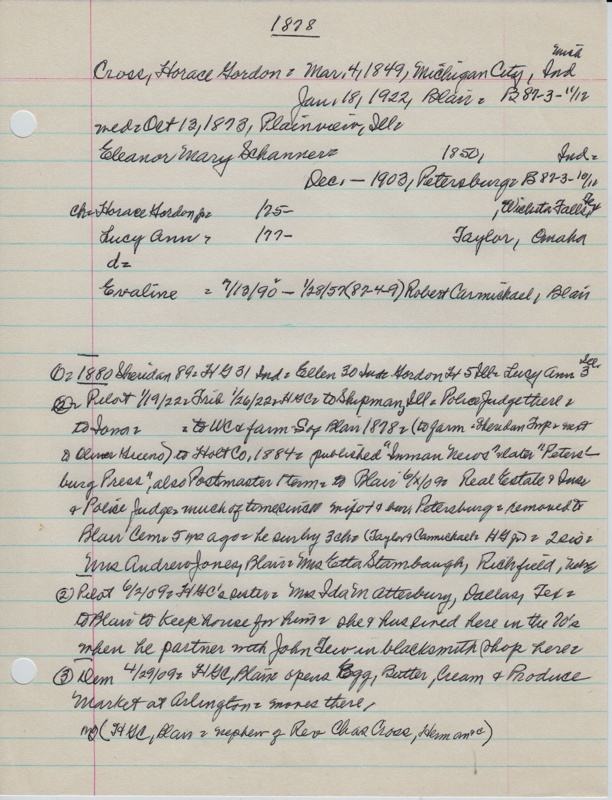 1878
Cross, Horace Gordon = Mar, 4, 1849, Michigan City, Ind
Jan, 18, 1922, Blair = B 87-3-11/12
med = Oct 13, 1873, Plainview, Ill =
Eleanor Mary Schanner = 1850, Ind =
Dec, - 1903, Petersburg = B 87-3-10/12
ch = Horace Gordon, Jr = 175- , Wichita Falls, Tex
Lucy Ann = 177- Taylor, Omaha
d =
Evaline = 7/13/90 - 1/28/57 (87-4-9) Robert Carmichael, Blair
O = 1880 Sheridan 89 = H G 31 Ind = Ellen 30 Ind = Gordon H 5 Ill = Lucy Ann 3 Ill.
Pilot 1/19/22 = Trib 1/26/22 = HGC = to Shipman, Ill = Police Judge there =
to Iowa = = to WC & farm Blair 1878 = (to farm = Sheridan Twp = next
to Oliver ) to Holt Co, 1884 = published "Inman News" = later "Peters-
burg Press", also Postmaster 1 term = to Blair 6/2/09 = Real Estate & Insr
& Police Judge = much of time since = wife & son Petersburg = removed to
Blair Cem = 5 ago = he sur by 3 ch = (Taylor & Carmichael = HG Jr) = 2 sis =
Mrs Andrew Jones, Blair = Mrs Etta Stambaugh, Richfield,
② Pilot 6/2/09 = HGC's sister = Mrs Ida M Atterbury, Dallas, Tex =
to Blair to keep house for him = she & hus lived here in the 70's
when he partner with John in blacksmith shop here =
③ Dem 4/29/09 = HGC, Blair opens Egg, Butter, Cream & Produce
Market at Arlington = moves there,
(HGC, Blair = nephew of Rev Chas Cross, Herman )